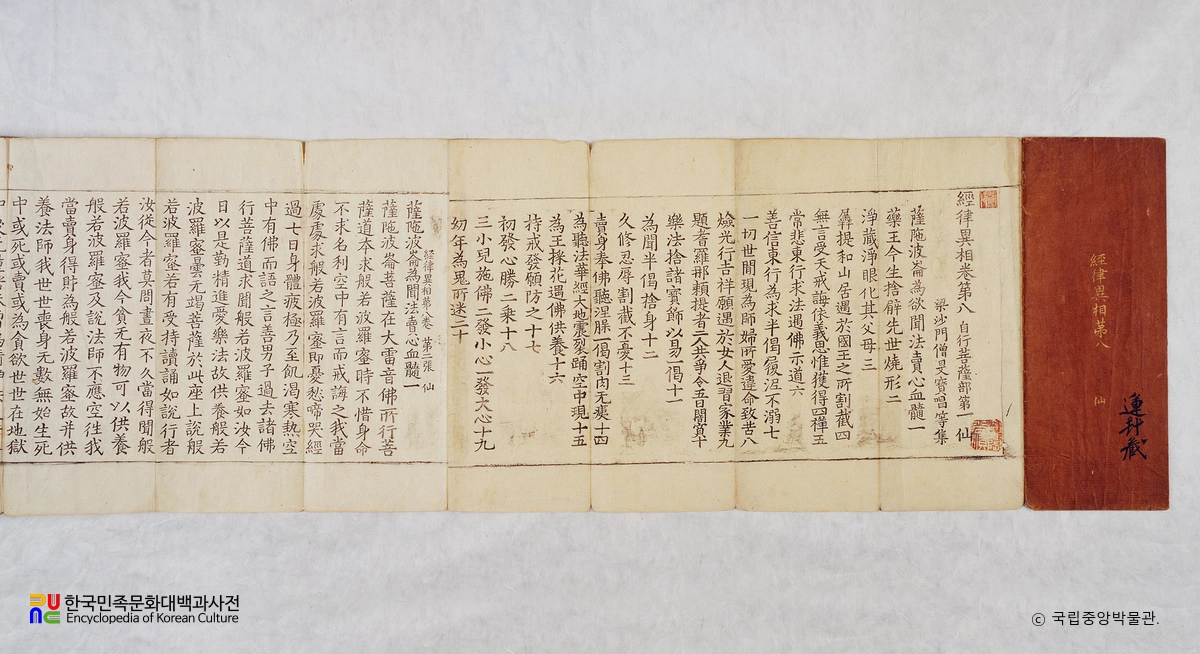 經律異相第八
仙
蓮封藏
經律異相卷第八 自行菩薩部第一 仙
梁沙門僧旻寶唱等集
薩陁波崙爲欲聞法賣心血髓一
藥王今生捨臂先世燒形二
淨藏淨眼化其父母三
羼提和山居遇於國王之所割截四
無言受天戒誨依義思惟獲得四禪五
常悲東行求法遇佛示道六
善信東行爲求半偈復泒不溺七
一切世閒現爲師婦所愛違命致苦八
㷿光行吉祥願遇於女人退習家業九
題耆羅那頼提者二人共爭令五日闇冥十
樂法捨諸寶飾以易一偈十一
爲聞半偈捨身十二
久修忍辱割截不憂十三
賣身奉佛聽涅槃一偈割肉无瘐十四
爲聽法華經大地震裂踊空中現十五
爲王採花遇佛供養十六
持戒發願防之十七
初發心勝二乘十八
三小兒施佛二發小心一發大心十九
幼年爲鬼所迷二十
經律異相第八卷 第二張 仙
薩陁波崙爲聞法賣心血髓一
薩陁波崙菩薩在大雷音佛所行菩
薩道本求般若波羅蜜時不惜身命
不求名利空中有言而戒誨之我當
處處求般若波羅蜜即憂愁啼哭經
過七日身體疲極乃至飢渴寒熱空
中有佛而語之言善男子過去諸佛
行菩薩道求聞般若波羅蜜如汝今
日以是勤精進愛樂法故供養般若
波羅蜜曇无竭菩薩於此座上說般
若波羅蜜若有受持讀誦如說行者
汝從今者莫問晝夜不久當得聞般
若波羅蜜我今貧无有物可以供養
般若波羅蜜及說法師不應空往我
當賣身得財爲般若波羅蜜故并供
養法師我世世喪身无數無始生死
中或死或賣或爲欲世世在地獄
한국민족문화대백과사전
Encyclopedia of Korean Culture
© 국립중앙박물관.